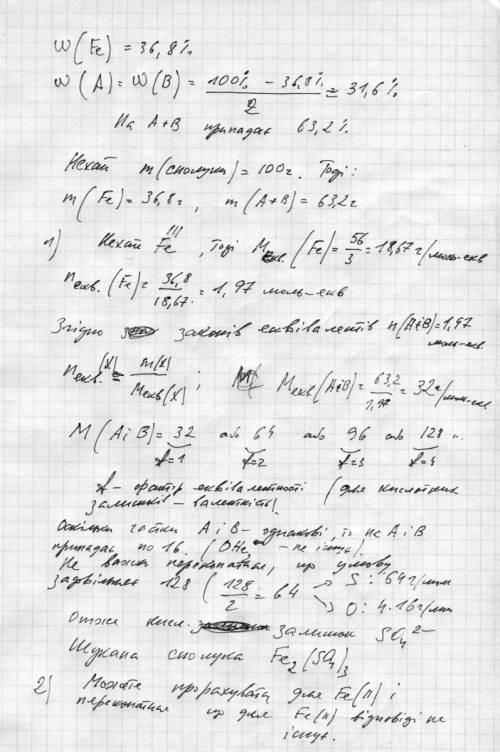 ω(Fe) = 36,8%
ω(A) = ω(B) = (100% - 36,8%)/2 = 31,6%
На A+B припадає 63,2%
Нехай m(сполуки) = 100г. Тоді:
m(Fe) = 36,8г, m(A+B) = 63,2г
1) Нехай Fe^III, тоді Mекв.(Fe) = 56/3 = 18,67 г/моль-екв
nекв.(Fe) = 36,8/18,67 = 1,97 моль-екв
Згідно законів еквівалентів n(A+B) = 1,97 моль-екв.
nекв.(x) = m(x)/Mекв(x); Mекв(AiB) = 63,2/1,97 = 32 г/моль-екв
M(AiB) = 32 або 64 або 96 або 128 ..
f=1 f=2 f=3 f=4
f - фактор еквівалентності (для кислотних
залишків - валентність).
Оскільки частки A і B - однакові, то на A і B
припадає по 16. (OHe - не існує).
Не важко переконатися, що умову
задовільняє 128 (128/2 = 64 S: 64г/моль
O: 4·16г/моль
Отже кисл. залишок SO4^2-
Шукана сполука Fe2(SO4)3
2) Можете прорахувати для Fe(II) і
переконатися що для Fe(II) відповіді не
існує.